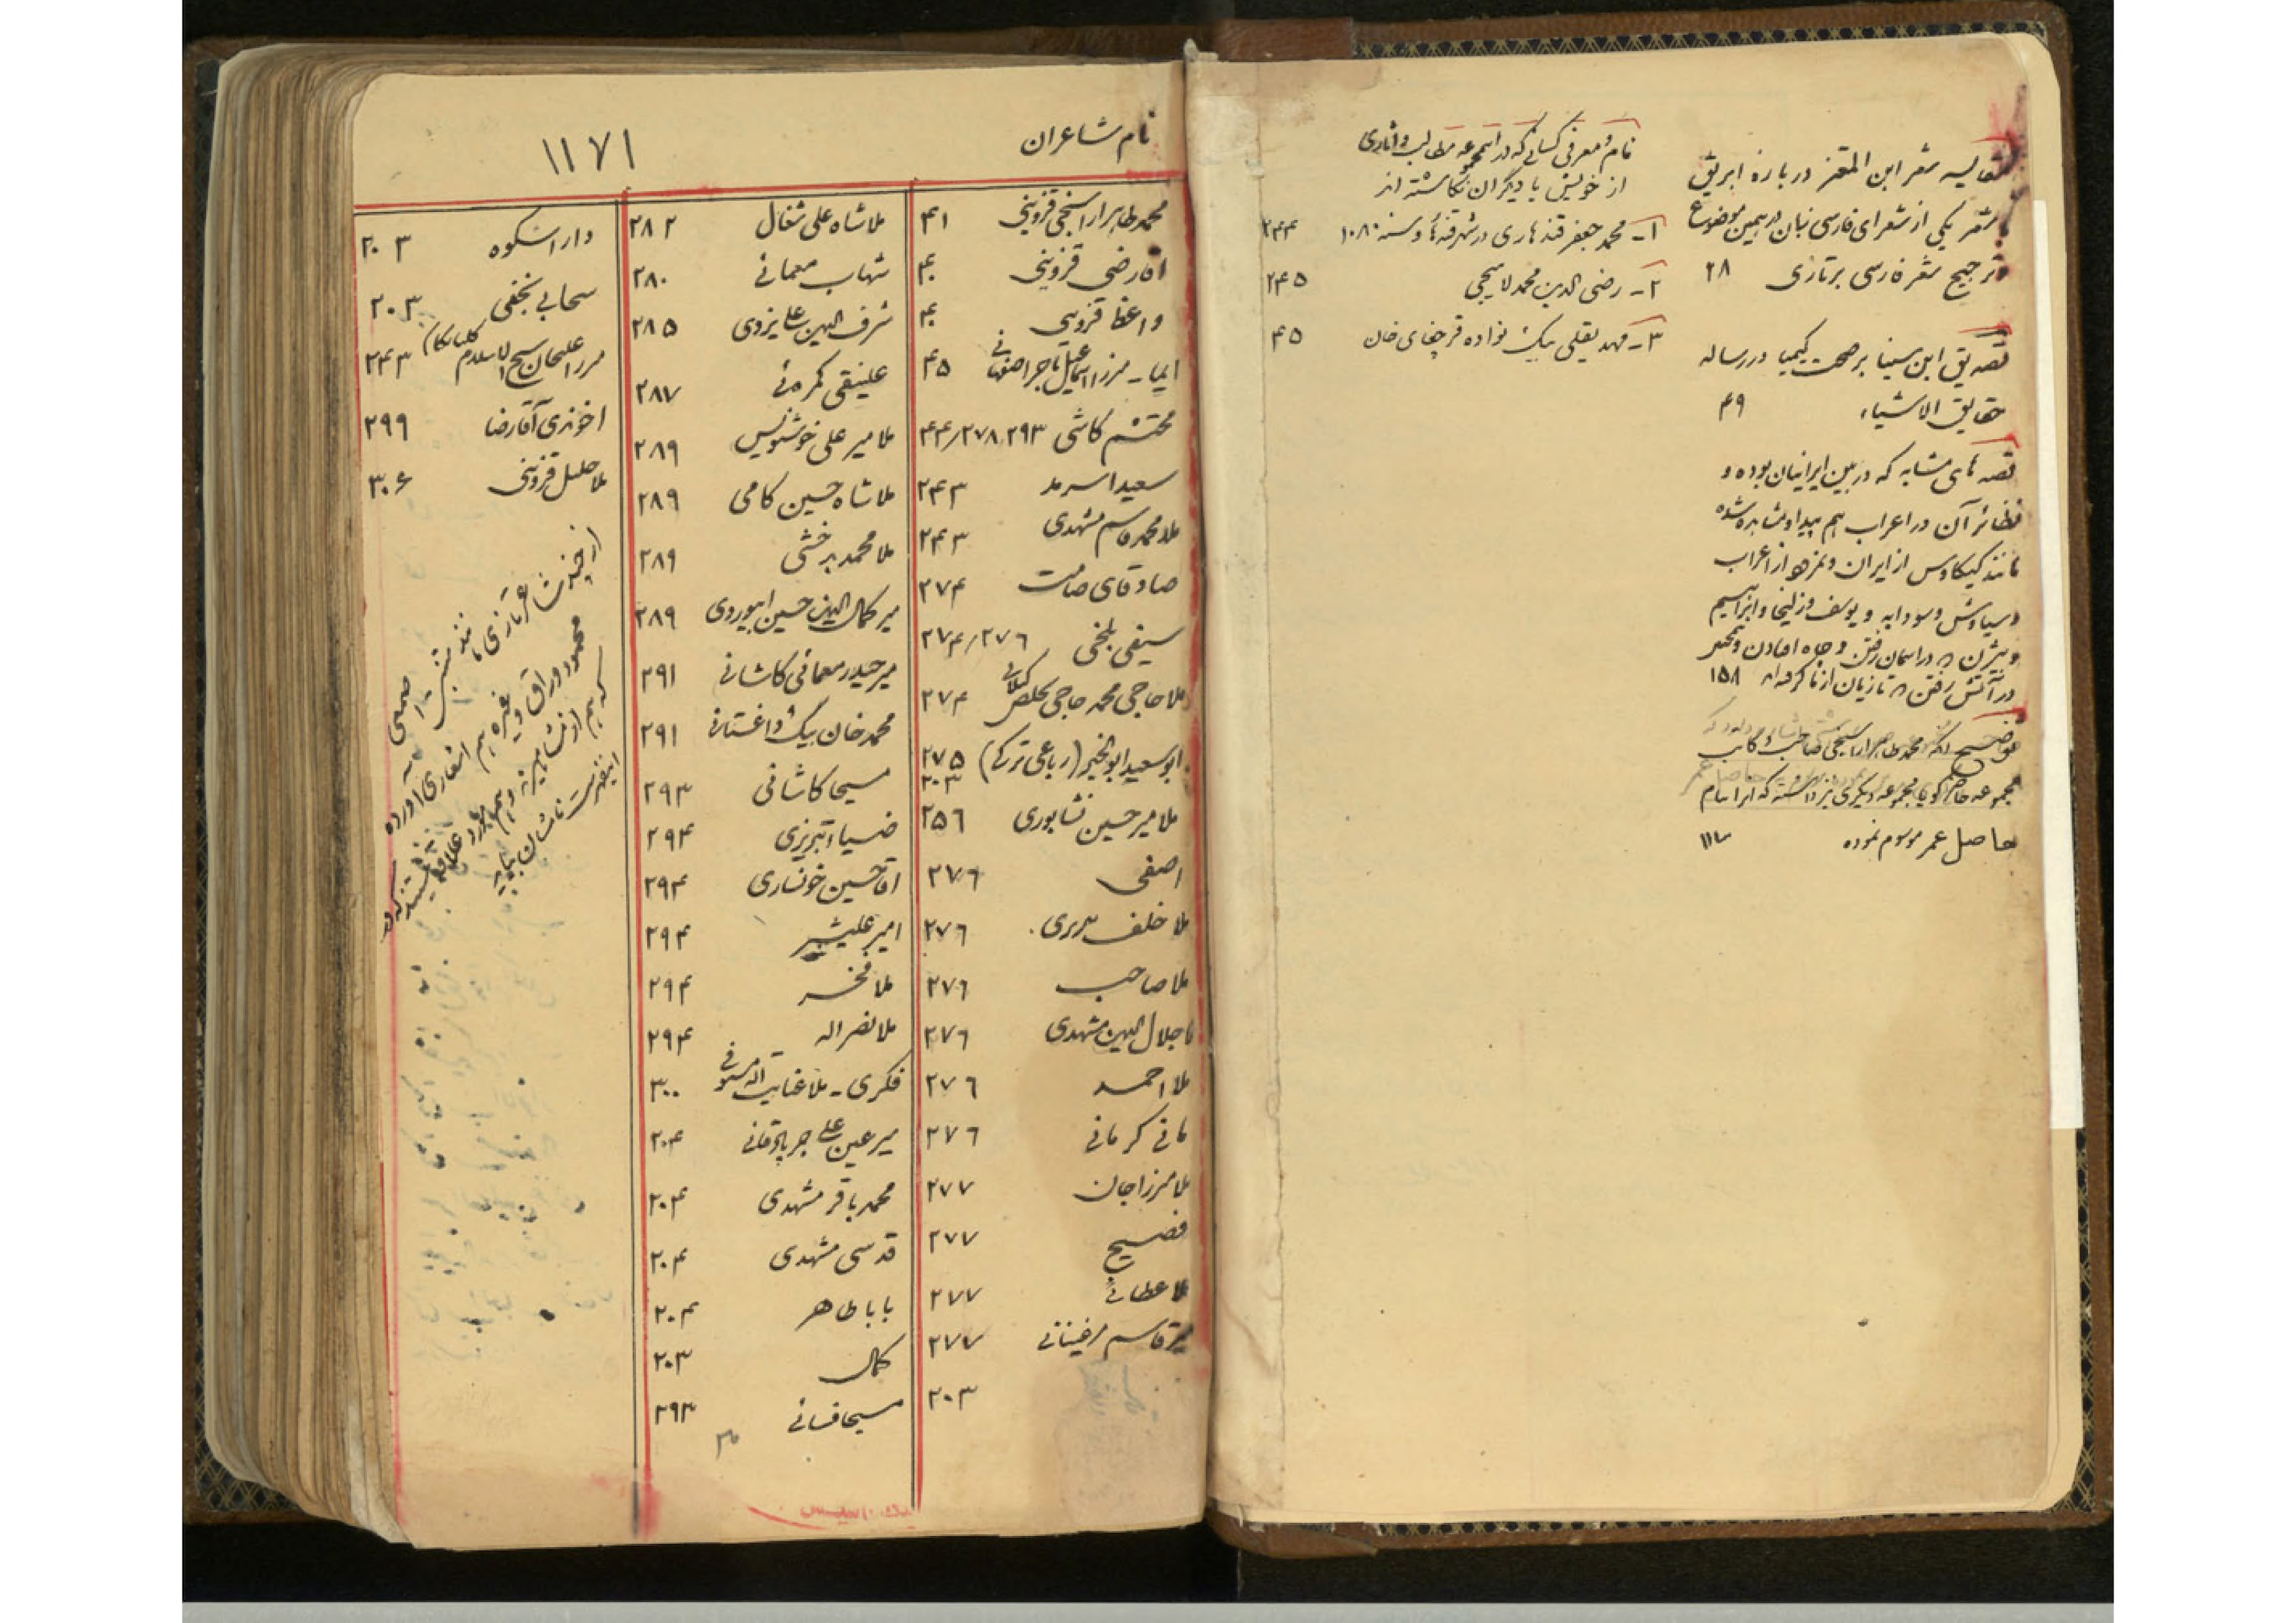 مقایسه شعر ابن المعتز درباره ابریق
شعر یکی از شعرای فارسی زبان در همین موضوع
و ترجیح شعر فارسی بر تازی ۲۸
تصدیق ابن سینا بر صحت کیمیا در رساله
حقایق الاشیاء ۴۹
قصه های مشابه که در بین ایرانیان بوده و
نظائر آن در اعراب هم پیدا و مشابه شده
مانند کیکاوس از ایران و نمرود از اعراب
و سیاوش و سودابه و یوسف و زلیخا و ابراهیم
و بیژن در آسمان رفتن و چاه افتادن و
در آتش رفتن تازیان از ما گرفته‌اند ۱۵۸
توضیح آنکه محمد طاهرا راسخجی صاحب و کاتب
مجموعه حاضر گویا مجموعه دیگری نیز داشته که آنرا بنام
حاصل عمر موسوم نموده
نام و معرفی کسانی که در این مجموعه مطالب و آثاری
از خویش یا دیگران نگاشته اند
۱ـ محمد جعفر قندهاری در شهر قندهار سنه ۱۰۸۰ ۲۴۴
۲ـ رضی الدین محمد لاهیجی ۲۴۵
۳ـ مهدیقلی بیک نواده قرچغای خان ۴۵
نام شاعران
۱۱۷۱
محمد طاهرا قزوینی ۴۱
اقارضی قزوینی ۴۰
واعظ قزوینی ۴۰
ایما ـ میرزا اسماعیل تاجر اصفهانی ۴۵
محتشم کاشی ۲۹۳ ۴۴/۲۷۸
سعیدا سرمد ۲۴۳
ملا محمد قاسم مشهدی ۲۴۳
صادقای صامت ۲۷۴
سیفی بلخی ۲۷۴/۲۷۶
ملا حاجی محمد حاجی تخلص گیلانی ۲۷۴
ابو سعید ابوالخیر (رباعی ترکی) ۲۷۵
۲۰۳
ملا میر حسین نشابوری ۲۵۶
اصفی ۲۷۶
ملا خلف ۲۷۶
ملا صاحب ۲۷۶
ملا جلال الدین مشهدی ۲۷۶
ملا احمد ۲۷۶
مانی کرمانی ۲۷۶
ملا میرزا جان ۲۷۷
فصیح ۲۷۷
ملا عطائی ۲۷۷
میر قاسم مرغینانی ۲۷۷
۲۰۳
ملا شاه علی شغال ۲۸۲
شهاب معمائی ۲۸۰
شرف الدین علی یزدی ۲۸۵
علینقی کمره‌ئی ۲۸۷
ملا میر علی خوشنویس ۲۸۹
ملا شاه حسین کامی ۲۸۹
ملا محمد بدخشی ۲۸۹
میر کمال الدین حسین ابیوردی ۲۸۹
میر حیدر معمائی کاشانی ۲۹۱
محمد خان بیک داغستانی ۲۹۱
مسیحا کاشانی ۲۹۳
ضیاء تبریزی ۲۹۴
اقا حسین خونساری ۲۹۴
امیر علیشیر ۲۹۴
ملا فخر ۲۹۴
ملا نصر اله ۲۹۴
فکری ـ ملا عنایت اله مستوفی ۳۰۰
میر عین علی جربادقانی ۲۰۴
محمد باقر مشهدی ۲۰۴
قدسی مشهدی ۲۰۴
بابا طاهر ۲۰۴
کمال ۲۰۳
مسیحا فسائی ۲۹۳
دارا شکوه ۲۰۳
سحابی نجفی ۲۰۳
میرزا علیخان شیخ الاسلام گلپایگانی ۲۴۳
اخوندی آقا رضا ۲۹۹
ملا خلیل قزوینی ۳۰۶
از چند شاعر تازی مانند متنبی
محمود وراق و غیره هم اشعاری آورده